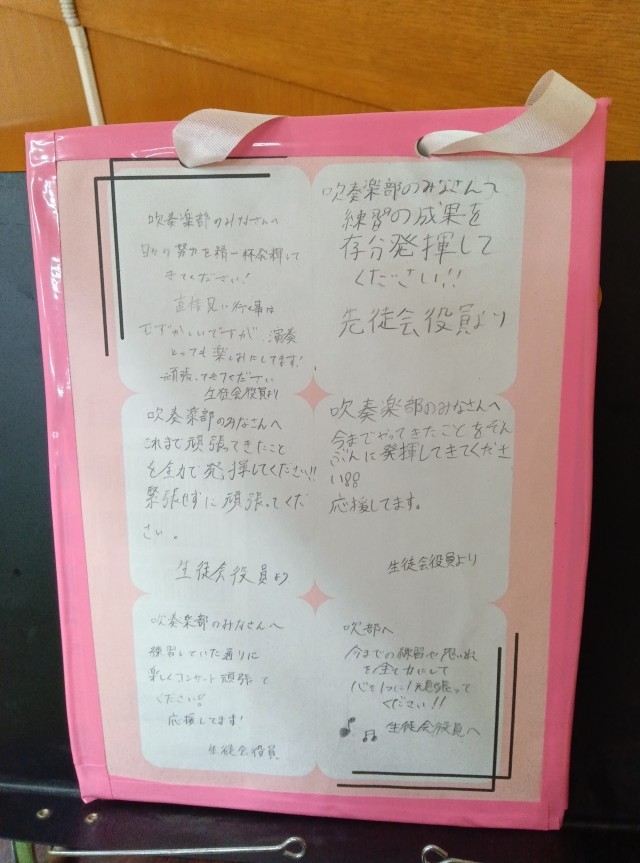 吹奏楽部のみなさんへ
日々の努力を精一杯発揮して
きてください!
直接見に行く事は
むずかしいですが、演奏
とっても楽しみにしてます!
頑張ってきてください
生徒会役員より
吹奏楽部のみなさんへ
練習の成果を
存分発揮して
ください!!
先徒会役員より
吹奏楽部のみなさんへ
これまで頑張ってきたこと
を全力で発揮してください!!
緊張せずに頑張ってくだ
さい。
生徒会役員より
吹奏楽部のみなさんへ
今までやってきたことをぞん
ぶんに発揮してきてくださ
い!!
応援してます。
生徒会役員より
吹奏楽部のみなさんへ
練習していた通りに
楽しくコンサート頑張って
ください!!
応援してます!
生徒会役員
吹部へ
今までの練習や思い出
を全て力にして
心を1つに!頑張って
ください!!
生徒会役員へ